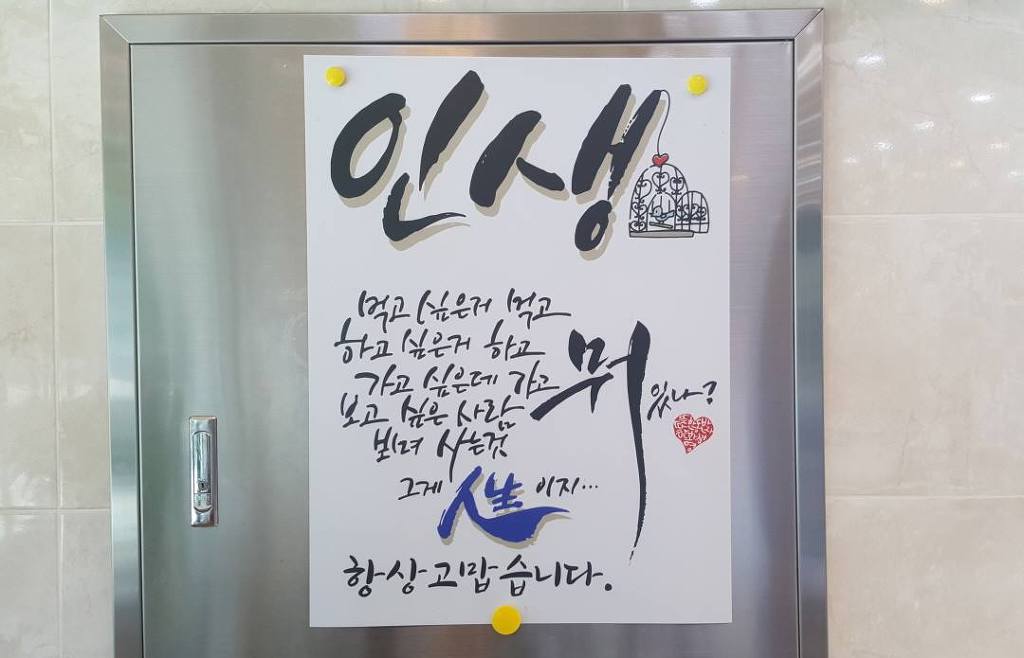 인생
뭐 있나?
먹고 싶은거 먹고
하고 싶은거 하고
가고 싶은데 가고
보고 싶은 사람
보며 사는것
그게 人生 이지...
항상 고맙습니다.